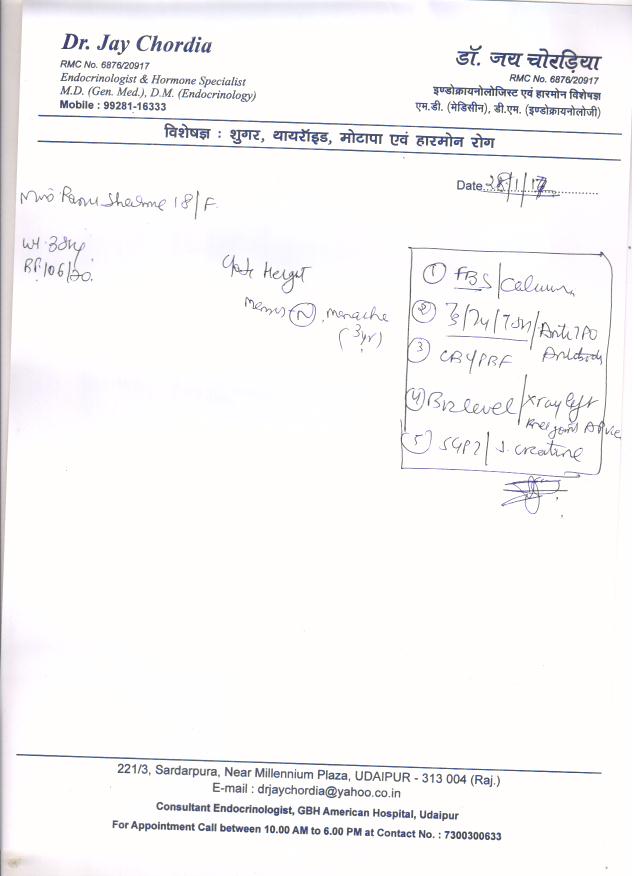 Dr. Jay Chordia
RMC No. 6876/20917
Endocrinologist & Hormone Specialist
M.D. (Gen. Med.), D.M. (Endocrinology)
Mobile : 99281-16333
डॉ. जय चोरड़िया
RMC No. 6876/20917
इण्डोक्रायनोलोजिस्ट एवं हारमोन विशेषज्ञ
एम.डी. (मेडिसीन), डी.एम. (इण्डोक्रायनोलोजी)
विशेषज्ञ : शुगर, थायरॉइड, मोटापा एवं हारमोन रोग
Date 28/1/17
18/F
Wt. 38kg
BP. 106/70.
Menses (N), menache
(3yr)
① FBS/Calcium
② T3/T4/TSH/Anti TPO
Antibody
③ CBC/PBF
④ B12 level/Xray left
Knee joint AP
⑤ SGPT/S. creatine
221/3, Sardarpura, Near Millennium Plaza, UDAIPUR - 313 004 (Raj.)
E-mail : drjaychordia@yahoo.co.in
Consultant Endocrinologist, GBH American Hospital, Udaipur
For Appointment Call between 10.00 AM to 6.00 PM at Contact No. : 7300300633